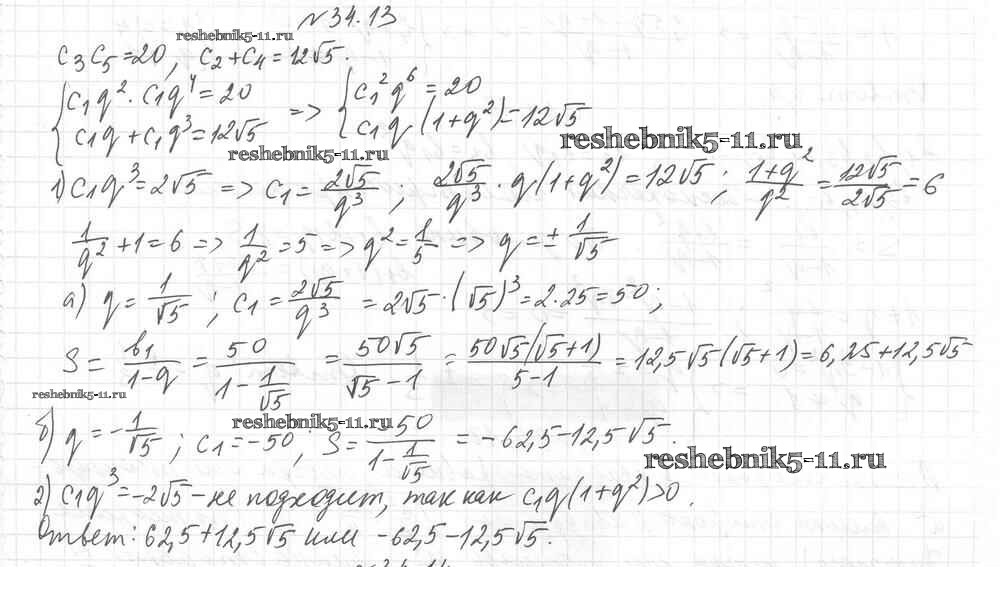 №34.13
reshebnik5-11.ru
c₃c₅=20, c₂+c₄=12√5.
{c₁q²·c₁q⁴=20 => {c₁²q⁶=20
{c₁q+c₁q³=12√5 {c₁q(1+q²)=12√5
reshebnik5-11.ru
reshebnik5-11.ru
1) c₁q³=2√5 => c₁=2√5/q³; 2√5/q³·q(1+q²)=12√5; 1+q²/q²=12√5/2√5=6
1/q²+1=6 => 1/q²=5 => q²=1/5 => q=±1/√5
а) q=1/√5; c₁=2√5/q³=2√5·(√5)³=2·25=50;
S=b₁/1-q=50/1-1/√5=50√5/√5-1=50√5(√5+1)/5-1=12,5√5(√5+1)=6,25+12,5√5
reshebnik5-11.ru
reshebnik5-11.ru
б) q=-1/√5; c₁=-50; S=50/1-1/√5=-62,5-12,5√5.
reshebnik5-11.ru
2) c₁q³=-2√5 - не подходит, так как c₁q(1+q²)>0.
Ответ: 62,5+12,5√5 или -62,5-12,5√5.